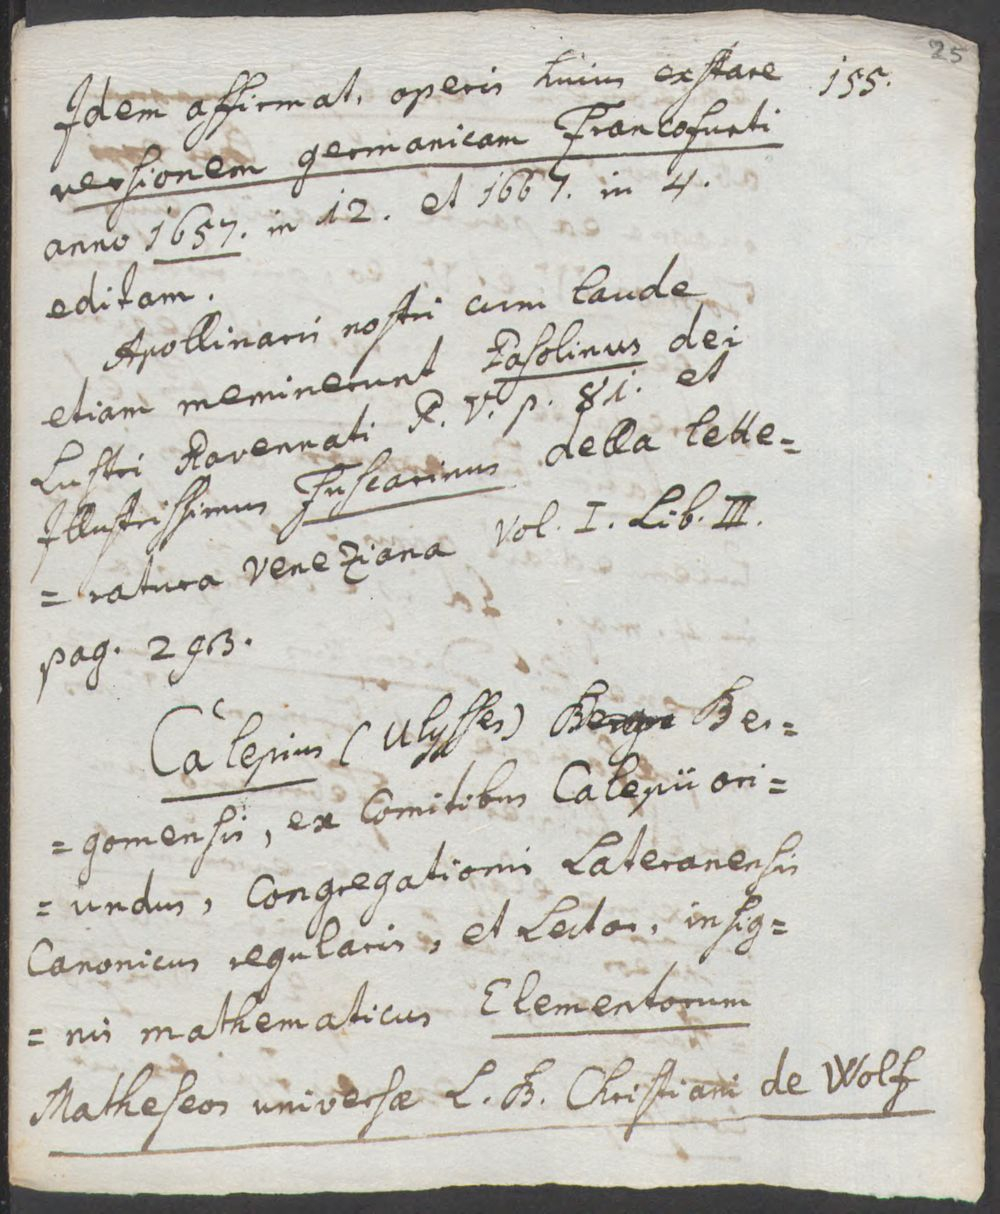 25
155.
Idem affirmat, operis huius exstare
versionem germanicam Francofurti
anno 1657. in 12. et 1667. in 4.
editam.
Apollinaris nostri cum laude
etiam meminerunt Pasolinus dei
Lustri Ravennati P. V. p. 81. et
Illustrissimus Fuscarinus della lette=
=ratura veneziana vol. I. Lib. III.
pag. 293.
Calepius (Ulysses) Ber=
=gomensis, ex Comitibus Calepii ori=
=undus, Congregationis Lateranensis
Canonicus regularis, et Lector, insig=
=nis mathematicus Elementorum
Matheseos universæ L. B. Christiani de Wolf